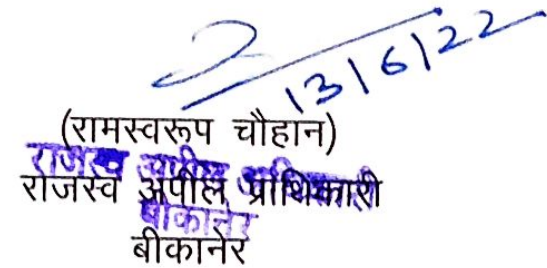 13/6/22
(रामस्वरूप चौहान)
राजस्व अपील प्राधिकारी
राजस्व अपील प्राधिकारी
बीकानेर
बीकानेर